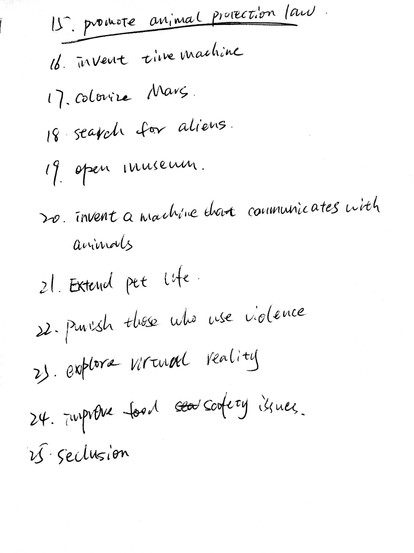 15. promote animal protection law.
16. invent time machine
17. colonize Mars.
18. search for aliens.
19. open museum.
20. invent a machine that communicates with
animals
21. Extend pet life.
22. punish those who use violence
23. explore virtual reality
24. improve food safety issues.
25. seclusion